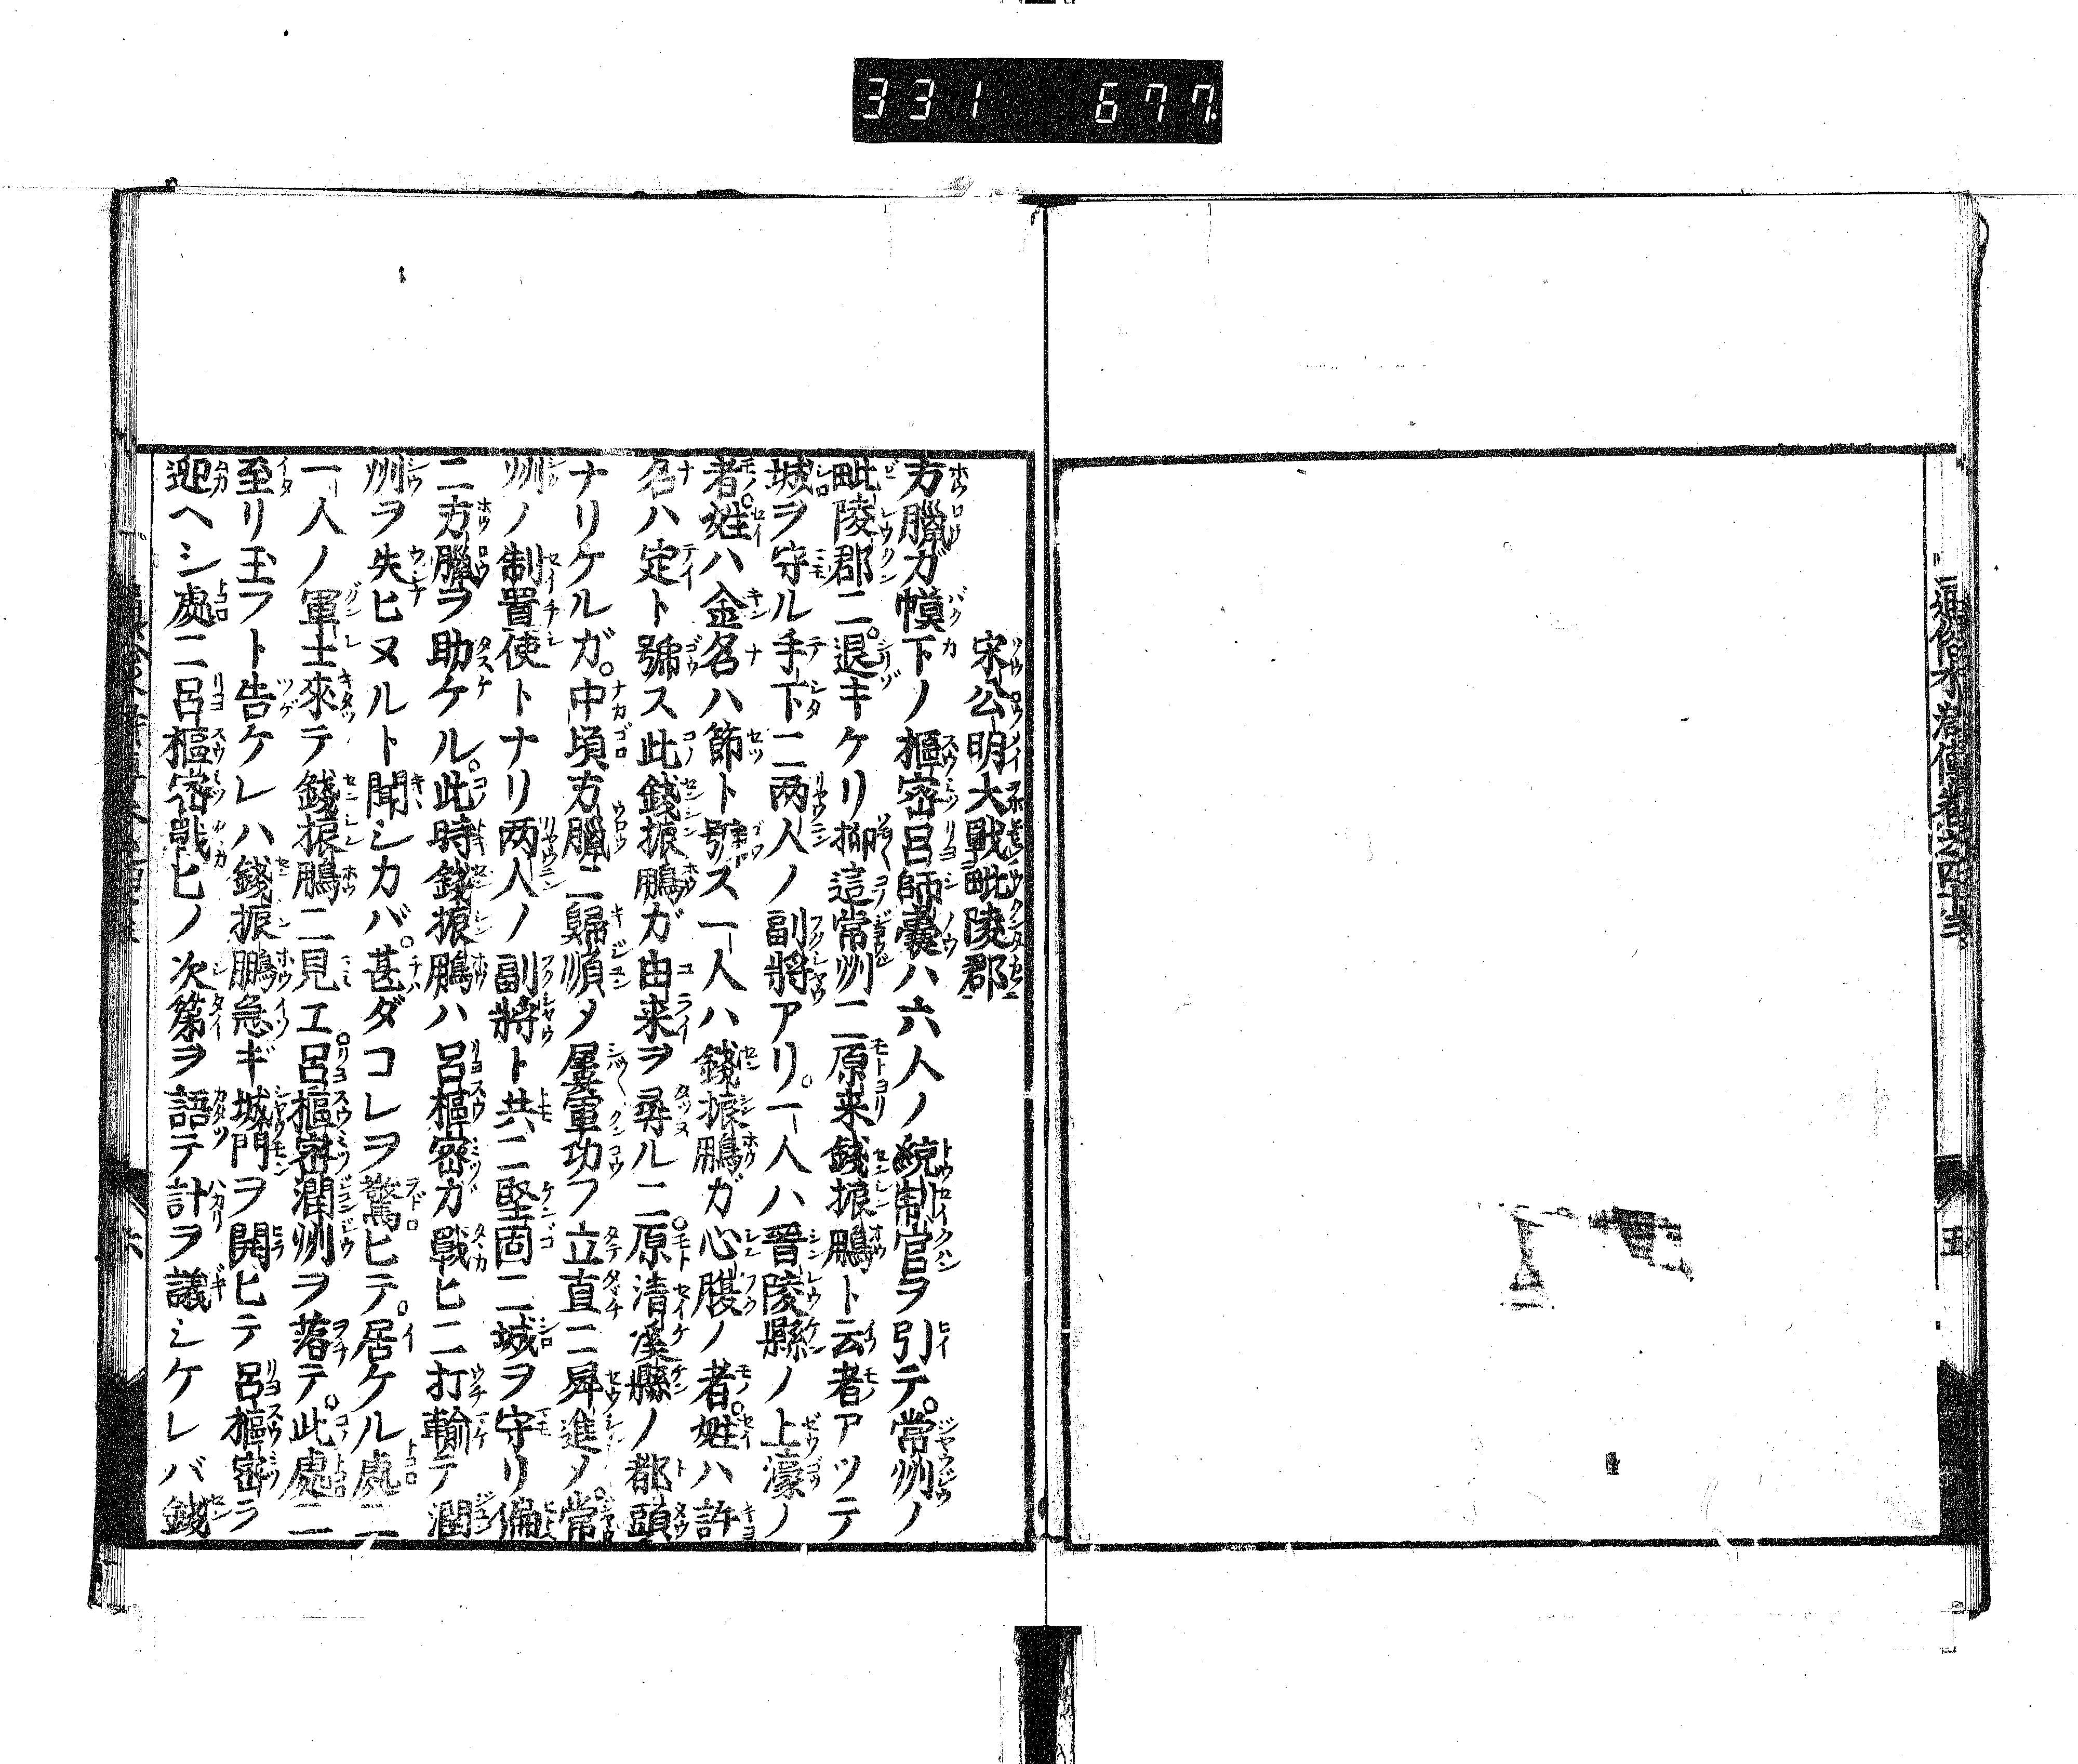 331 677
通俗水滸傳卷之四十三
五
宋公明大戰毗陵郡
方臘ガ幙下ノ樞密呂師囊ハ六人ノ統制官ヲ引テ。常州ノ
毗陵郡二。退キケリ抑這常州二原来錢振鵬ト云者アツテ
城ヲ守ル手下二両人ノ副將アリ。一人ハ晉陵縣ノ上濠ノ
者。姓ハ金名ハ節ト號ス一人ハ錢振鵬ガ心腹ノ者。姓ハ許
名ハ定ト號ス此錢振鵬ガ由来ヲ尋ル二。原清溪縣ノ都頭
ナリケルガ。中頃方臘二歸順メ屢軍功フ立直二舁進メ。常
州ノ制置使トナリ両人ノ副將ト共二堅固二城ヲ守リ偏
二方臘ヲ助ケル。此時錢振鵬ハ呂樞密ガ戰ヒ二打輸テ潤
州ヲ失ヒヌルト聞シカバ。甚ダコレヲ驚ヒテ。居ケル處二
一人ノ軍士來テ錢振鵬二見エ。呂樞密潤州ヲ落テ。此處二
至リ玉フト告ケレハ錢振鵬急ギ城門ヲ開ヒテ呂樞密ラ
迎ヘシ處二呂樞密戰ヒノ次第ヲ語テ計ヲ議シケレバ錢
六